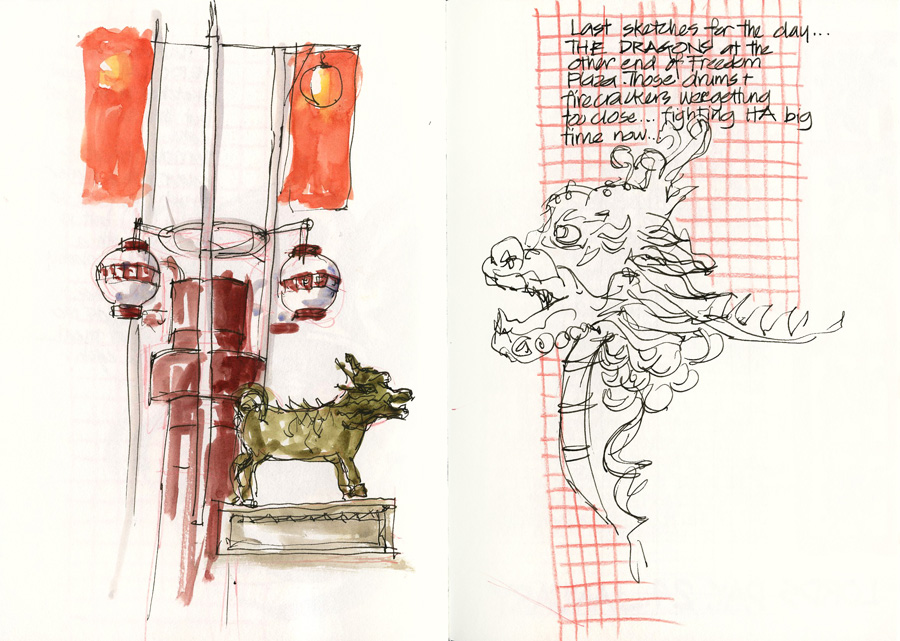 Last sketches for the day...
THE DRAGONS at the
other end of Freedom
Plaza. Those drums +
firecrackers were getting
too close... fighting HA big
time now...